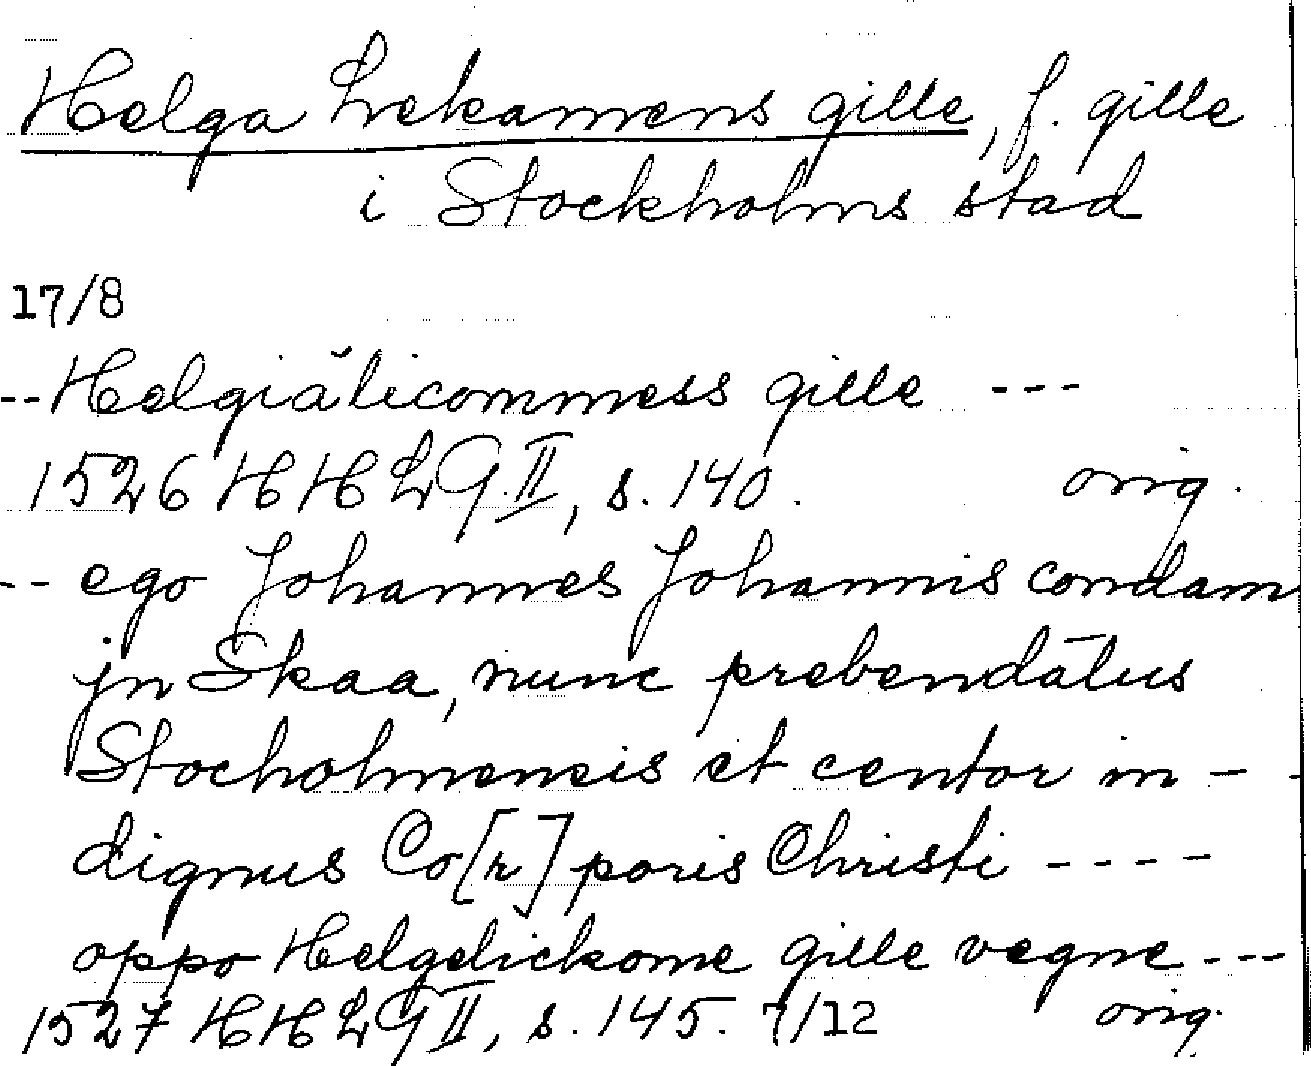 Helga Lekamens gille, f. gille
i Stockholms stad
17/8
--Helgiălicommess gille ---
1526 HHLG II, s. 140. orig.
-- ego Johannes Johannis condam
jn Skaa, nunc prebendātus
Stocholmensis et centor in-
dignus Co[r]poris Christi ----
oppo Helgelickome gille vegne ---
1527 HHLG II, s. 145. 7/12 orig.